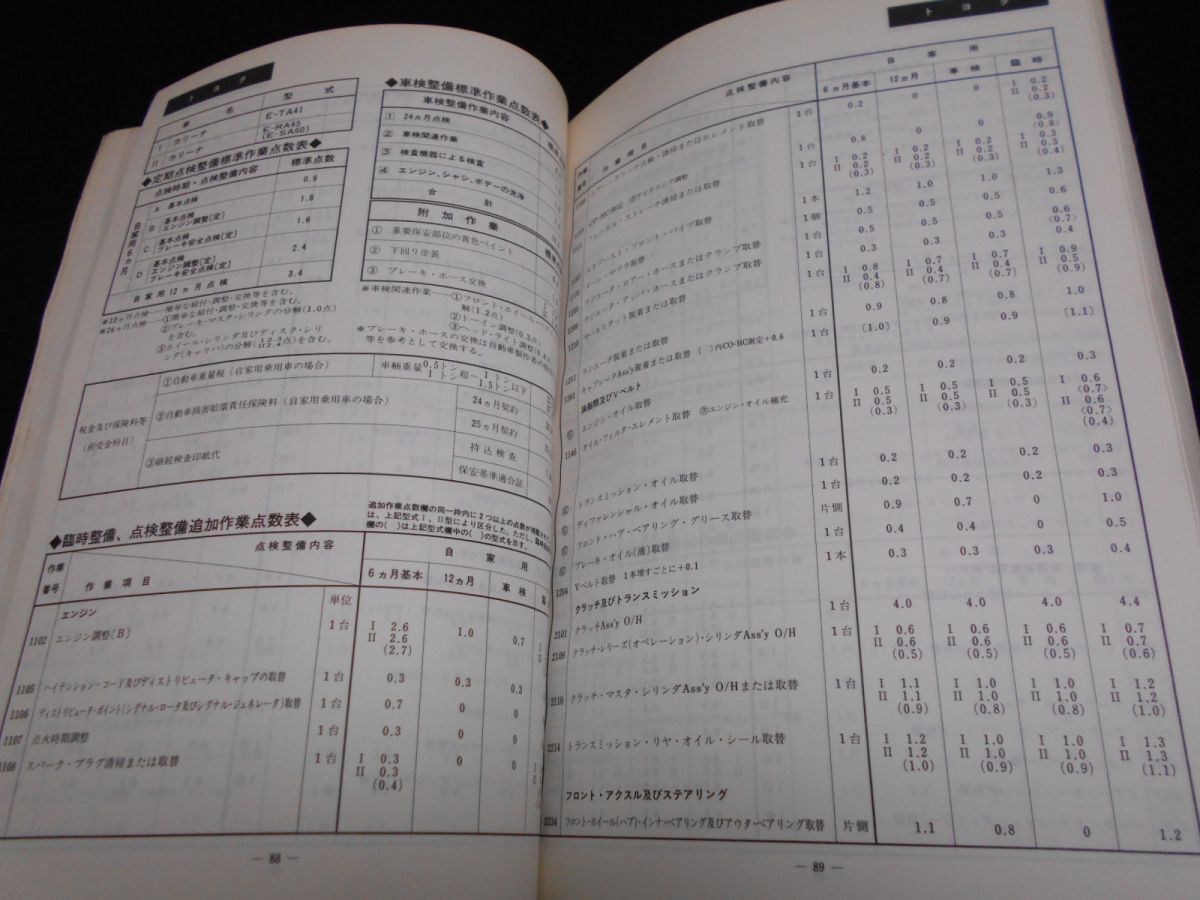 トヨタ
車名 型式
I カリーナ E-TA41
II カリーナ E-RA45
(E-SA60)
◆定期点検整備標準作業点数表◆
点検時期・点検整備内容 標準点数
自家用6カ月
A 基本点検 0.9
B 基本点検 エンジン調整(定) 1.8
C 基本点検 ブレーキ安全点検(定) 1.6
D 基本点検 エンジン調整(定) ブレーキ安全点検(定) 2.4
自家用12カ月点検 3.4
※12カ月点検──簡単な給付・調整・交換等を含む。
※24カ月点検──①簡単な給付・調整・交換等を含む。
②ブレーキ・マスタ・シリンダの分解(1.0点)
を含む。
③ホイール・シリンダ及びディスク・シリ
ンダ(キャリパ)の分解
◆車検整備標準作業点数表◆
車検整備作業内容
① 24カ月点検
② 車検関連作業
③ 検査機器による検査
④ エンジン、シャシ、ボデーの洗浄
合計
附加作業
① 重要保安部位の黄色ペイント
② 下回り塗装
③ ブレーキ・ホース交換
※車検関連作業──①フロント・ホイール・ハブ
解(1.2点)
②トーイン調整(0.3点)
③ヘッド・ライト調整(0.4
※ブレーキ・ホースの交換は自動車製作者の
等を参考として交換する。
税金及び保険料等
(前受金科目)
①自動車重量税(自家用乗用車の場合) 車輛重量 0.5トン超~1トン
1トン 1.5トン以下
②自動車損害賠償責任保険料(自家用乗用車の場合) 24カ月契約
25カ月契約
③継続検査印紙代 持込検査
保安基準適合証
◆臨時整備、点検整備追加作業点数表◆
追加作業点数欄の同一枠内に2つ以上の点数が
は、上記型式I、II型により区分した。ただし、
欄の( )は上記型式欄中の( )の型式を示す。
作業番号 作業項目 点検整備内容 自家用
6カ月基本 12カ月 車検
エンジン 単位
1102 エンジン調整〔B〕 1台 I 2.6 1.0 0.7
II 2.6
(2.7)
1105 ハイテンション・コード及びディストリビュータ・キャップの取替 1台 0.3 0.3 0.3
1106 ディストリビュータ・ポイント(シグナル・ロータ及びシグナル・ジェネレータ)取替 1台 0.7 0 0
1107 点火時期調整 1台 0.3 0 0
1108 スパーク・プラグ清掃または取替 1台 I 0.3 0 0
II 0.3
(0.4)
― 88 ―
トヨタ
作業番号 作業項目 点検整備内容 自家用
6カ月基本 12カ月 車検 臨時
エア・クリーナ点検・清掃またはエレメント取替 1台 0.2 0 0 I 0.2
II 0.2
(0.3)
CO・HC測定 アイドリング調整 1台 0.8 0 0 0.9
<0.8>
フューエル・ストレーナ清掃または取替 1台 I 0.2 I 0.2 I 0.2 I 0.3
II 0.2 II 0.2 II 0.2 II 0.3
(0.3) (0.3) (0.3) (0.4)
エキゾースト・フロント・パイプ取替 1本 1.2 1.0 1.0 1.3
メーン・マフラ取替 1個 0.5 0.5 0.5 0.6
ラジエータ・ロアー・ホースまたはクランプ取替 1台 0.5 0.5 0.5 0.6
<0.7>
ラジエータ・アッパ・ホースまたはクランプ取替 1台 0.3 0.3 0.3 0.4
サーモスタット脱着または取替 1台 I 0.8 I 0.7 I 0.7 I 0.9
II 0.4 II 0.4 II 0.4 II 0.5
(0.8) (0.7) (0.7) (0.9)
ラジエータ脱着または取替 1台 0.9 0.8 0.8 1.0
キャブレータAss'y脱着または取替 〔 〕内CO・HC測定+0.6 1台 〔1.0〕 0.9 0.9 〔1.1〕
油脂類及びVベルト
エンジン・オイル取替 1台 0.2 0.2 0.2 0.3
1146 オイル・フィルタ・エレメント取替 エンジン・オイル補充 1台 I 0.5 I 0.5 I 0.5 I 0.6
<0.7>
II 0.5 II 0.5 II 0.5 II 0.6
<0.7>
(0.3) (0.3) (0.3) (0.4)
トランスミッション・オイル取替 1台 0.2 0.2 0.2 0.3
ディファレンシャル・オイル取替 1台 0.2 0.2 0.2 0.3
フロント・ハブ・ベアリング・グリース取替 片側 0.9 0.7 0 1.0
ブレーキ・オイル(液)取替 1台 0.4 0.4 0 0.5
1204 Vベルト取替 1本増すごとに+0.1 1本 0.3 0.3 0.3 0.4
クラッチ及びトランスミッション
2101 クラッチAss'y O/H 1台 4.0 4.0 4.0 4.4
2109 クラッチ・レリーズ(オペレーション)・シリンダAss'y O/H 1台 I 0.6 I 0.6 I 0.6 I 0.7
II 0.6 II 0.6 II 0.6 II 0.7
(0.5) (0.5) (0.5) (0.6)
2110 クラッチ・マスタ・シリンダAss'y O/Hまたは取替 1台 I 1.1 I 1.0 I 1.0 I 1.2
II 1.1 II 1.0 II 1.0 II 1.2
(0.9) (0.8) (0.8) (1.0)
2214 トランスミッション・リヤ・オイル・シール取替 1台 I 1.2 I 1.0 I 1.0 I 1.3
II 1.2 II 1.0 II 1.0 II 1.3
(1.0) (0.9) (0.9) (1.1)
フロント・アクスル及びステアリング
3234 フロント・ホイール(ハブ)・インナ・ベアリング及びアウタ・ベアリング取替 片側 1.1 0.8 0 1.2
― 89 ―